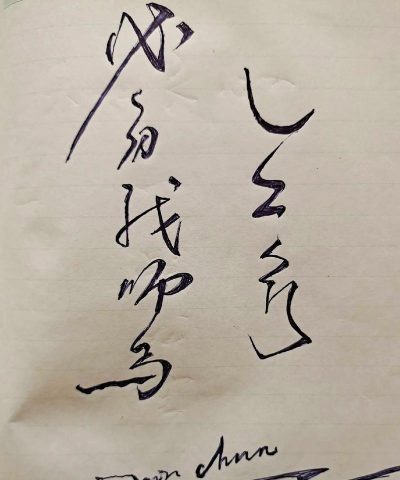 三人行
必有我师焉
chun